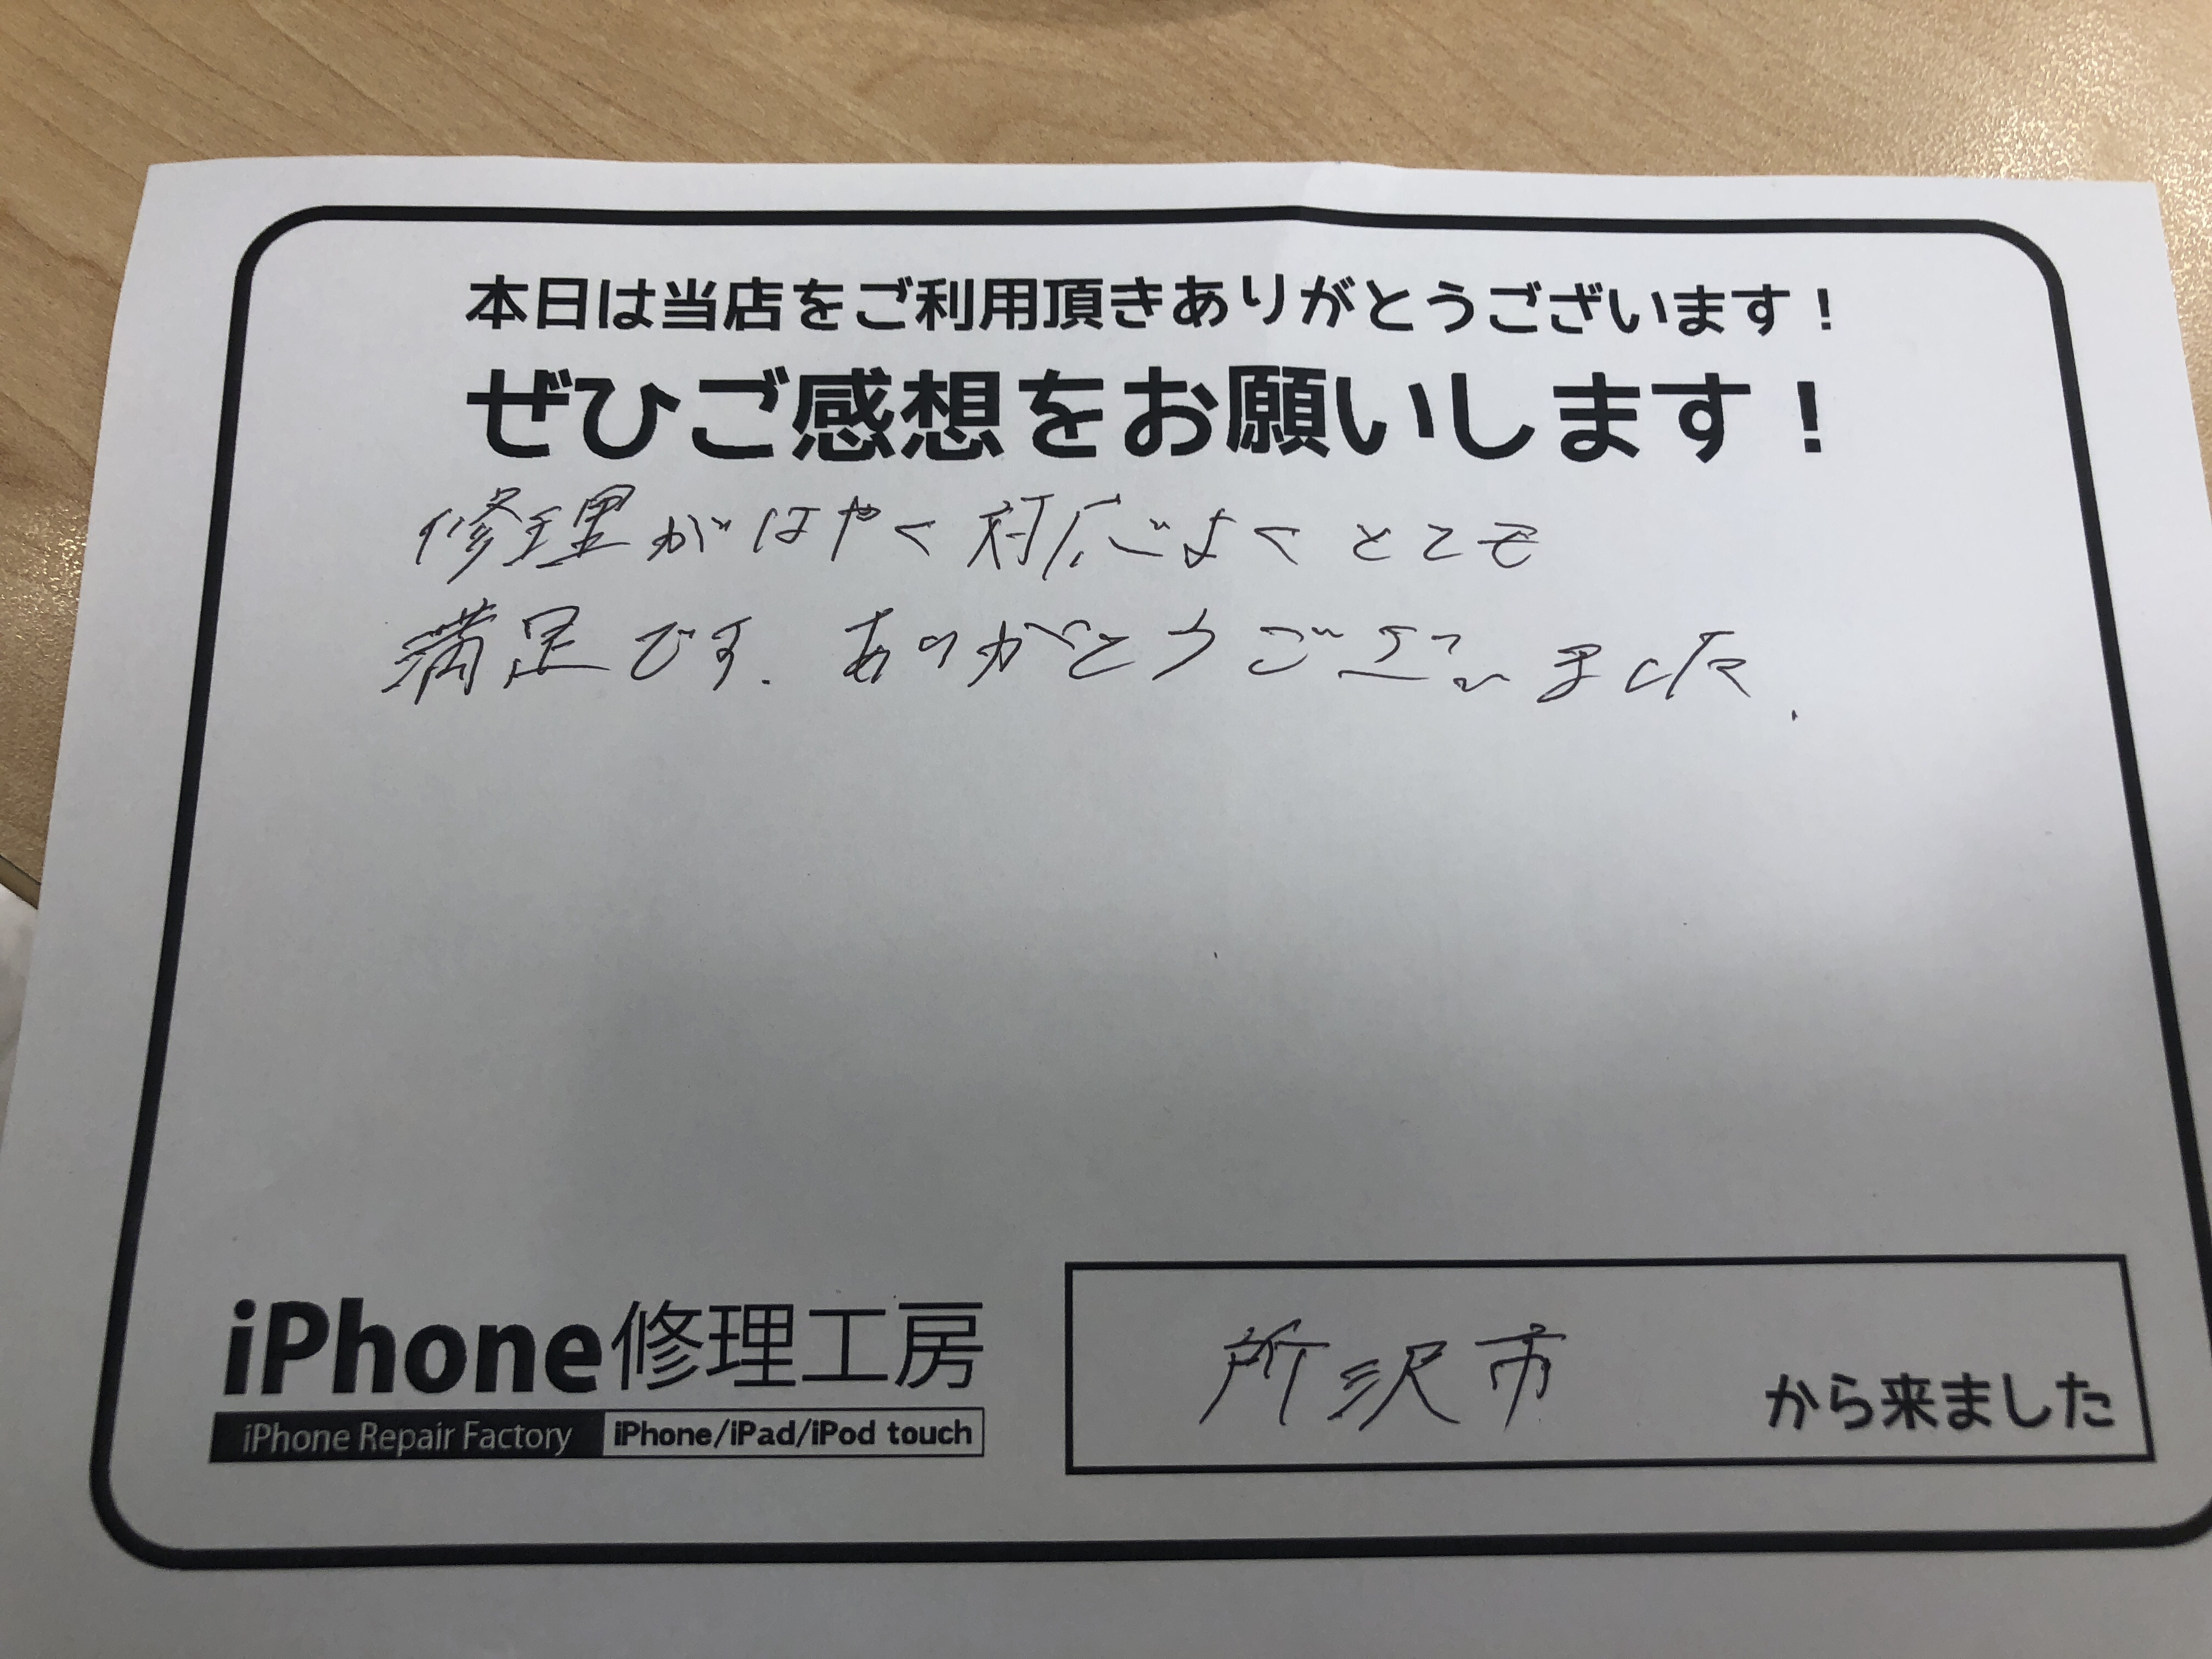 本日は当店をご利用頂きありがとうございます！
ぜひご感想をお願いします！
修理がはやく対応もよくとても
満足です．ありがとうございました．
iPhone修理工房
iPhone Repair Factory iPhone/iPad/iPod touch
所沢市 から来ました